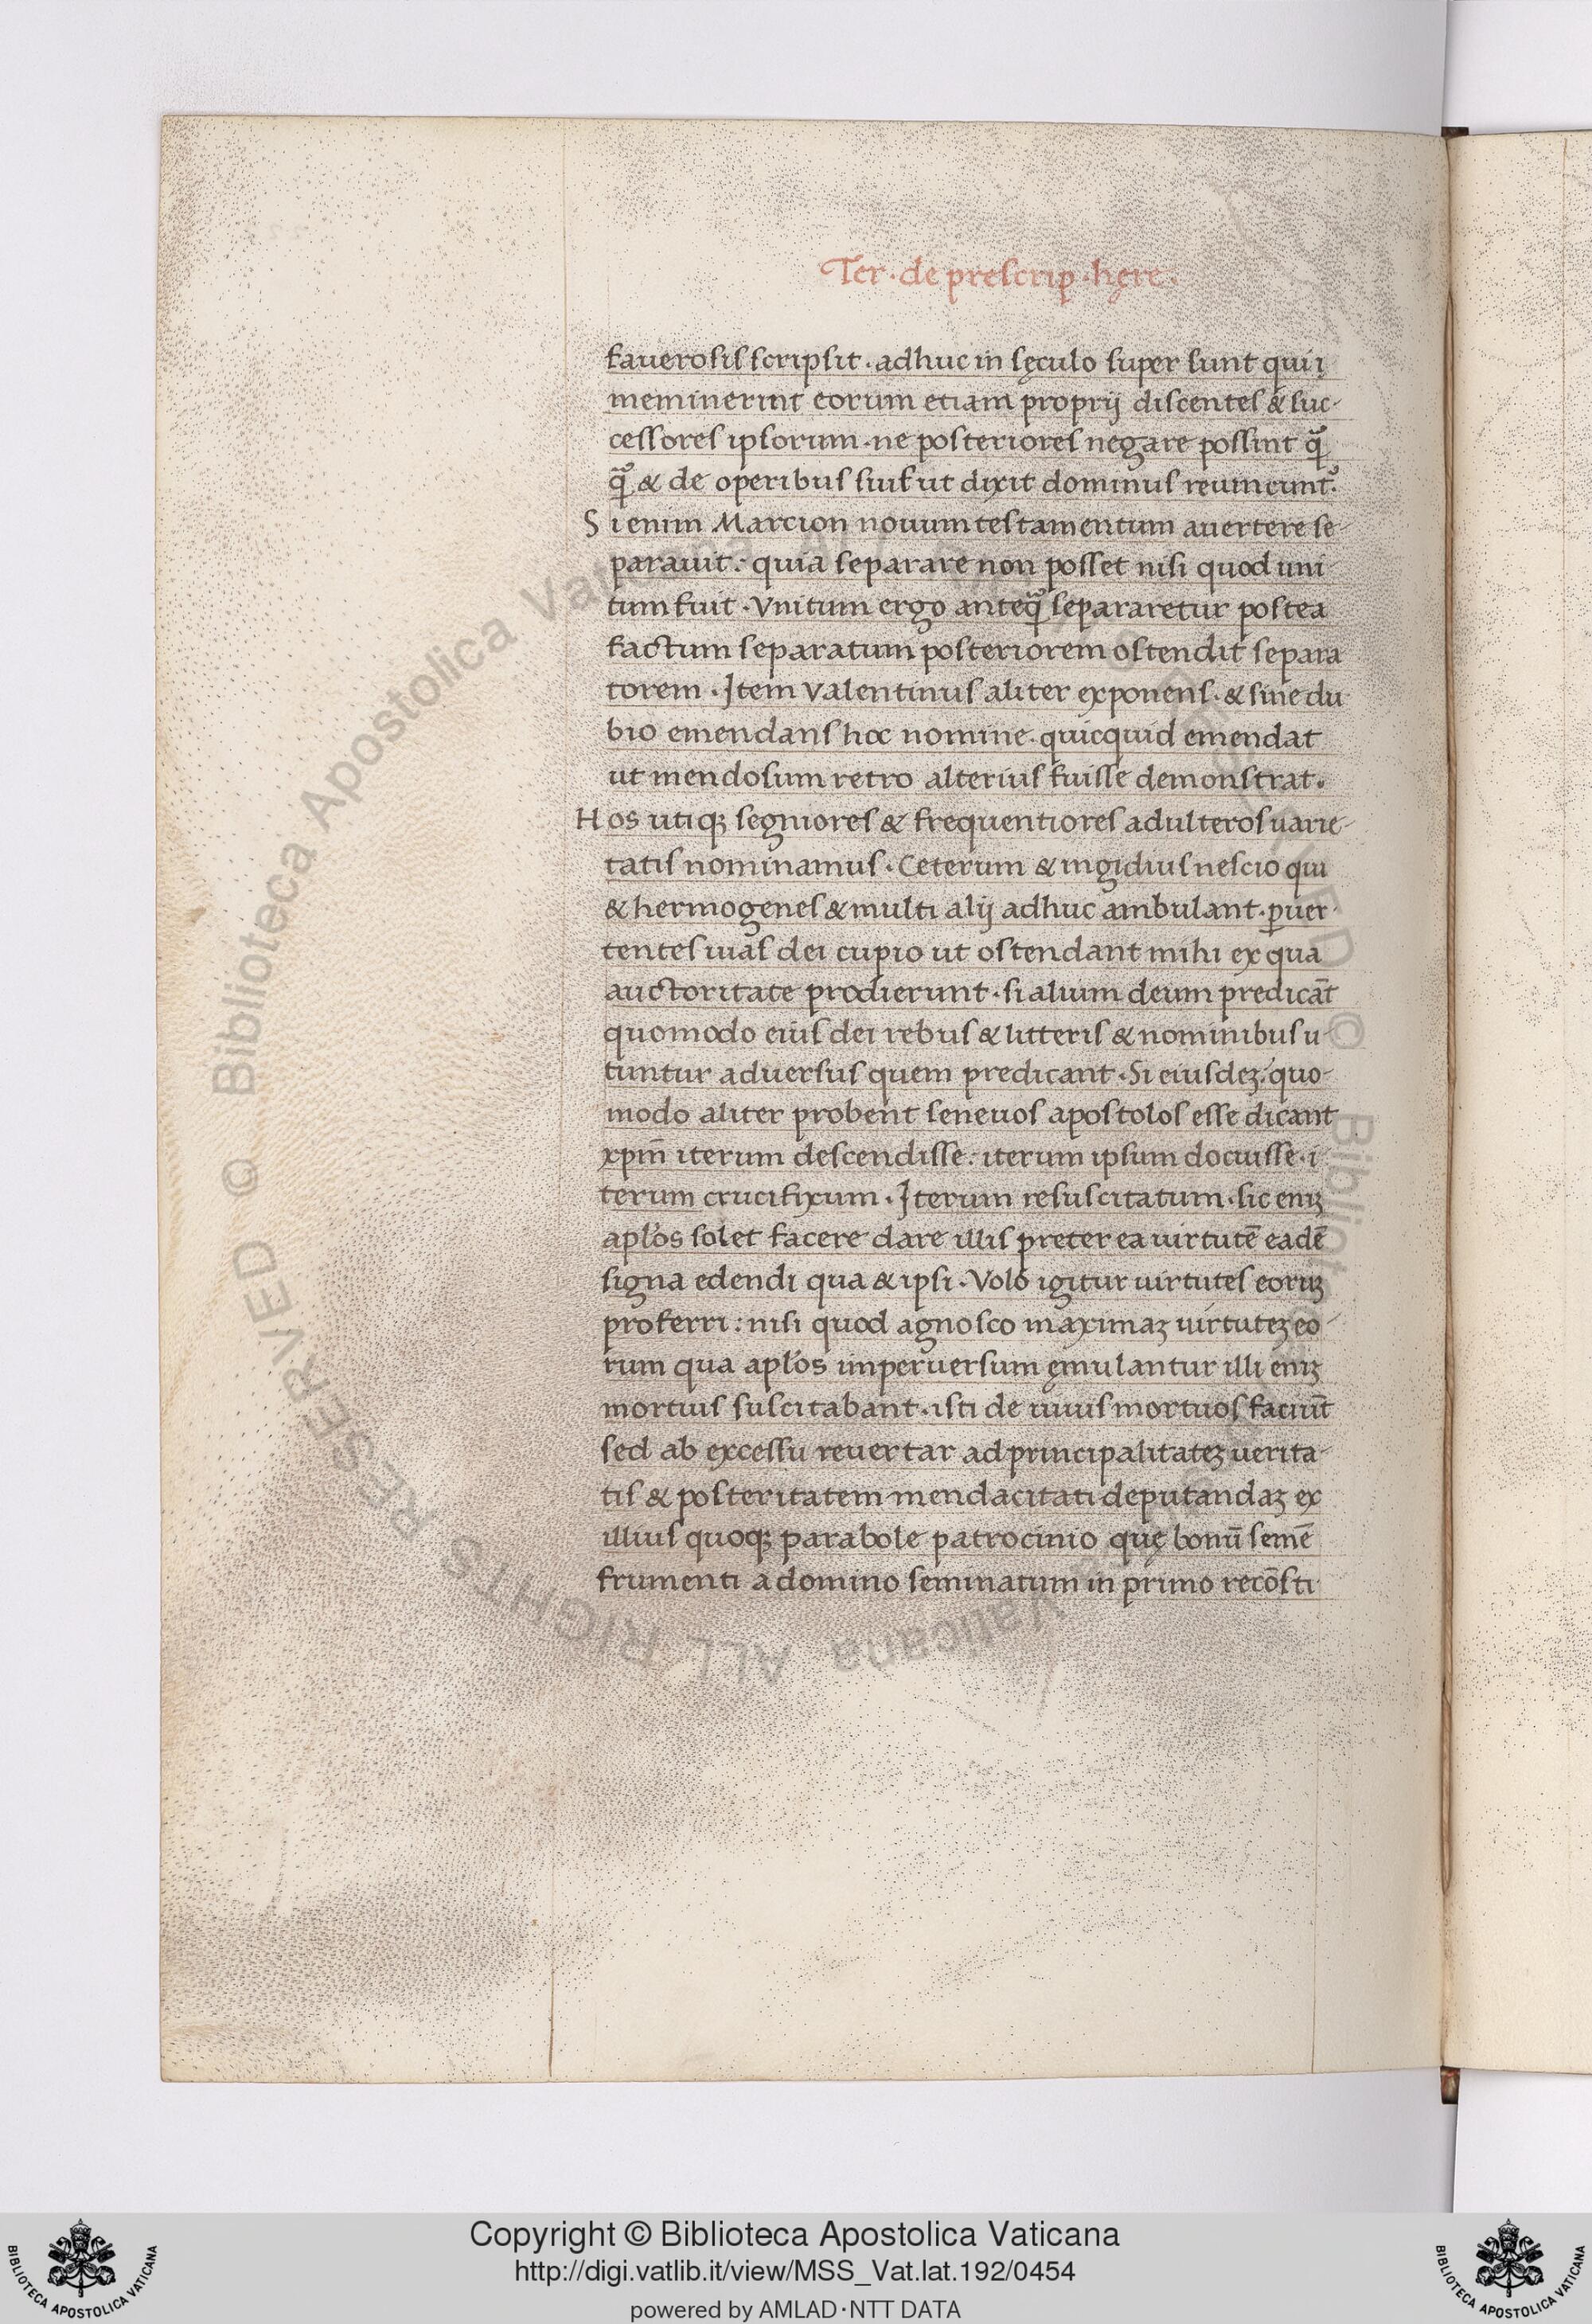 Ter · de prescrip · hęre ·
fauerosis scripsit · adhuc in sęculo super sunt qui ị
meminerint eorum etiam proprij discentes & suc-
cessores ipsorum · ne posteriores negare possint qͣ̃
qͣ̃ & de operibus suis ut dixit dominus reuincunt̉
Si enim Marcion nouum testamentum auertere se-
parauit : quia separare non posset nisi quod uni
tum fuit · Vnitum ergo anteqͣ̃ separaretur postea
factum separatum posteriorem ostendit separa
torem · Item Valentinus aliter exponens · & sine du
bio emendans hoc nomine · quicquid emendat
ut mendosum retro alterius fuisse demonstrat ·
Hos utiqꝫ segniores & frequentiores adulteros uarie-
tatis nominamus · Ceterum & ingidius nescio qui
& hermogenes & multi alij adhuc ambulant · ꝑuer-
tentes uias dei cupio ut ostendant mihi ex qua
auctoritate prodierunt · si alium deum predicāt
quomodo eius dei rebus & litteris & nominibus u-
tuntur aduersus quem predicant · Si eiusdeꝫ : quo-
modo aliter probent se neuos apostolos esse dicant
xpm̄ iterum descendisse : iterum ipsum docuisse · i
terum crucifixum · Iterum resuscitatum · sic eniꝫ
apl̓os solet facere dare illis preter ea uirtutē eadē
signa edendi qua & ipsi · Volo igitur uirtutes eoruꝫ
proferri : nisi quod agnosco maximaꝫ uirtuteꝫ eo-
rum qua apl̓os imperuersum ęmulantur illi eniꝫ
mortuis suscitabant · isti de uiuis mortuos faciūt
sed ab excessu reuertar ad principalitateꝫ uerita-
tis & posteritatem mendacitati deputandaꝫ ex
illius quoqꝫ parabole patrocinio quę bonū semē
frumenti a domino seminatum in primo recōsti
Copyright © Biblioteca Apostolica Vaticana
http://digi.vatlib.it/view/MSS_Vat.lat.192/0454
powered by AMLAD·NTT DATA
BIBLIOTECA APOSTOLICA VATICANA
BIBLIOTECA APOSTOLICA VATICANA